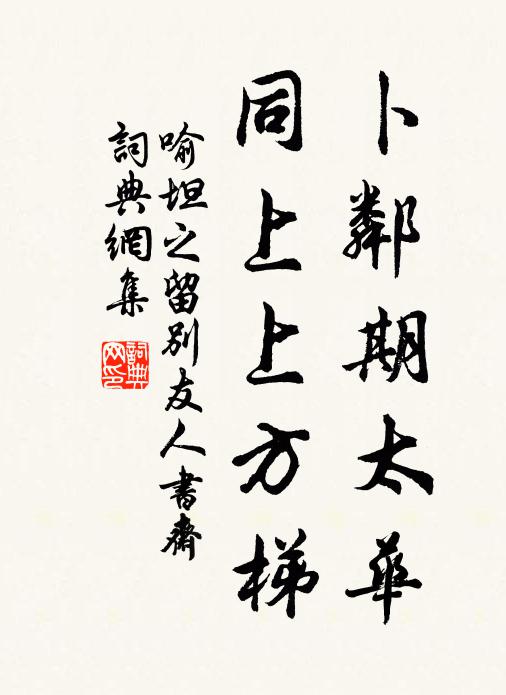 卜鄰期太華
同上上方梯
喻坦之留別友人書齋
詞典網集
詞典
网印